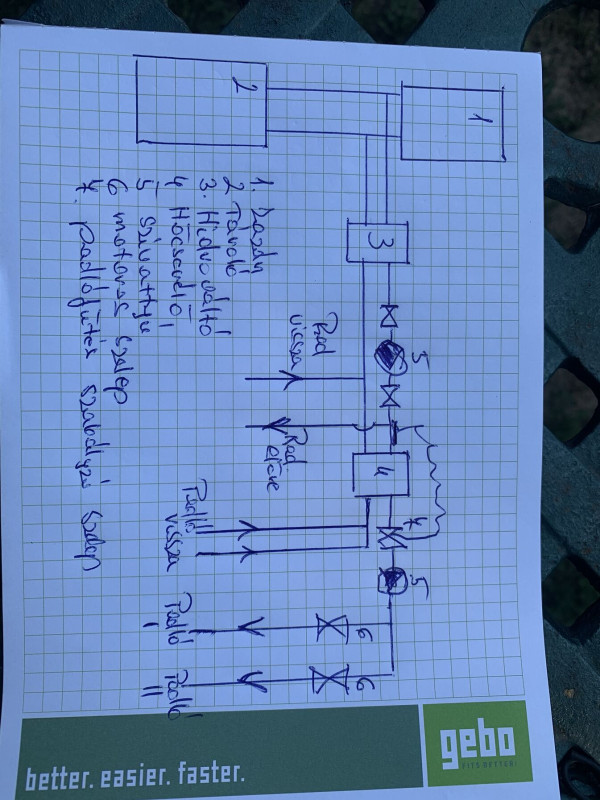 1
2
3
5
Rad
vissza
Rad
előre
4
7
5
Padló
vissza
6
Padló
I
6
Padló
II
1. Kazán
2 Tároló
3. Hidrováltó
4 Hőcserélő
5 Szivattyú
6 motoros szelep
7. padlófűtés szabályzó szelep
better. easier. faster.
gebo